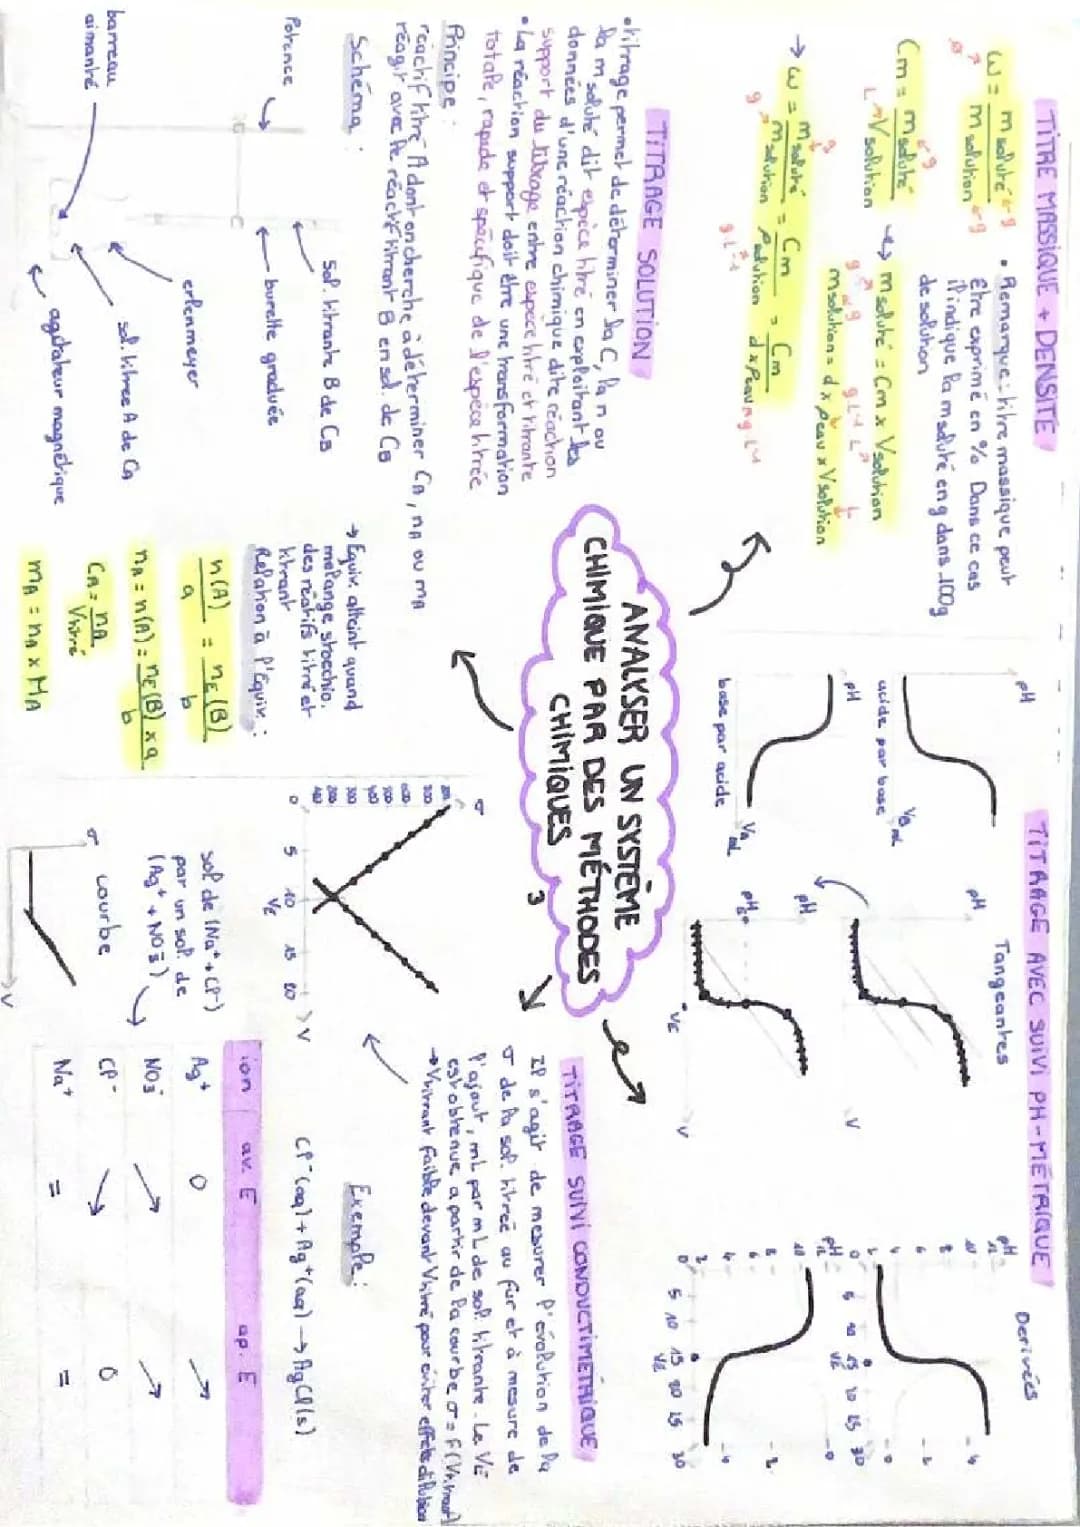 TITRE MASSIQUE + DENSITÉ
w = m soluté / m solution
g
g
• Remarque : titre massique peut
être exprimé en %. Dans ce cas
il indique la m soluté en g dans 100g
de solution
Cm = m soluté / V solution
g
L
→ m soluté = Cm x V solution
g g.L⁻¹ L
m solution = d x ρeau x V solution
→ w = m soluté / m solution = Cm / ρ solution = Cm / d x ρeau
g
g
g.L⁻¹
g.L⁻¹
TITRAGE SOLUTION
• titrage permet de déterminer la C, la n ou
la m soluté dit espèce titré en exploitant les
données d'une réaction chimique dite réaction
support du titrage entre espèce titré et titrante
• La réaction support doit être une transformation
totale, rapide et spécifique de l'espèce titrée
Principe :
réactif titré A dont on cherche à déterminer CA, nA ou mA
réagit avec le réactif titrant B en sol. de CB
Schéma :
Potence
sol. titrante B de CB
burette graduée
erlenmeyer
sol. titrée A de CA
barreau
aimanté
agitateur magnétique
→ Equiv. atteint quand
mélange stoechio.
des réactifs titré et
titrant
Relation à l'équiv. :
n(A) / a = nE(B) / b
nA = n(A) = nE(B) x a / b
CA = nA / Vtitré
mA = nA x MA
ANALYSER UN SYSTÈME
CHIMIQUE PAR DES MÉTHODES
CHIMIQUES
3
TITRAGE AVEC SUIVI PH-MÉTRIQUE
pH
acide par base
VB mL
pH
base par acide
VA mL
Tangeantes
pH
V
pH
pHE
VE
V
Dérivées
pH
12
10
8
6
4
2
0
5 10 15 20 25 30
VE
4
2
0
pH
12
10
8
6
4
2
0
5 10 15 20 25 30
VE
0
2
4
TITRAGE SUIVI CONDUCTIMÉTRIQUE
Il s'agit de mesurer l'évolution de la
σ de la sol. titrée au fur et à mesure de
l'ajout, mL par mL de sol. titrante. Le VE
est obtenue à partir de la courbe σ = f(Vtitrant)
→ Vtitrant faible devant Vtitré pour éviter effets dilution
Exemple :
Cl⁻(aq) + Ag⁺(aq) → AgCl(s)
σ
0 5 10 15 20 V
VE
sol de (Na⁺ + Cl⁻)
par un sol. de
(Ag⁺ + NO3⁻)
σ courbe
V
ion av. E ap. E
Ag⁺ 0 ↗
NO3⁻ ↗ ↗
Cl⁻ ↘ 0
Na⁺ = =